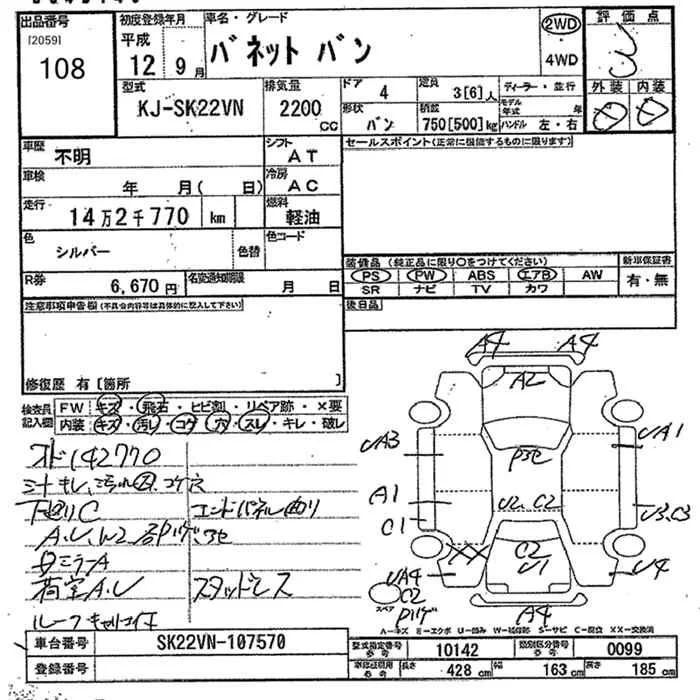 出品番号 初度登録年月 車名・グレード 2WD 評価点
[2059] 平成 バネット バン 4WD
108 12年 9月
型式 排気量 ドア 4 定員 3[6]人 ディーラー・並行 外装 内装
KJ-SK22VN 2200cc 形状 バン 積載 750[500]kg モデル年式 年 ハンドル 左・右 D D
車歴 不明 シフト AT セールスポイント(正常に機能するものに限ります)
車検 年 月( 日) 冷房 AC
走行 14万2千770 km 燃料 軽油
色 シルバー 色替 色コード
装備品(純正品に限り○をつけてください) 新車保証書
R券 6,670円 名変通知期限 月 日 PS PW ABS エアB AW 有・無
SR ナビ TV カワ
注意事項申告欄(不具合内容等は具体的に記入して下さい) 後日品
修復歴 有[箇所 ]
検査員記入欄 FW キズ・飛石・ヒビ割・リペア跡・×要
内装 キズ・汚レ・コゲ・穴・スレ・キレ・破レ
オド142770
シートキレ、コゲ穴
下廻りC エンドパネル曲り
ミラーA
荷室A.U スタッドレス
A4 A4
A2
UA3 UA1
A1 U2.C2 U3.C3
C1
C2 U1
UA4 C2 U4
スペア A4
A-キズ E-エクボ U-凹み W-補修跡 S-サビ C-腐食 XX-交換済
車台番号 SK22VN-107570 型式指定番号 参考 10142 類別区分番号 参考 0099
登録番号 参考 長さ 428cm 幅 163cm 高さ 185cm